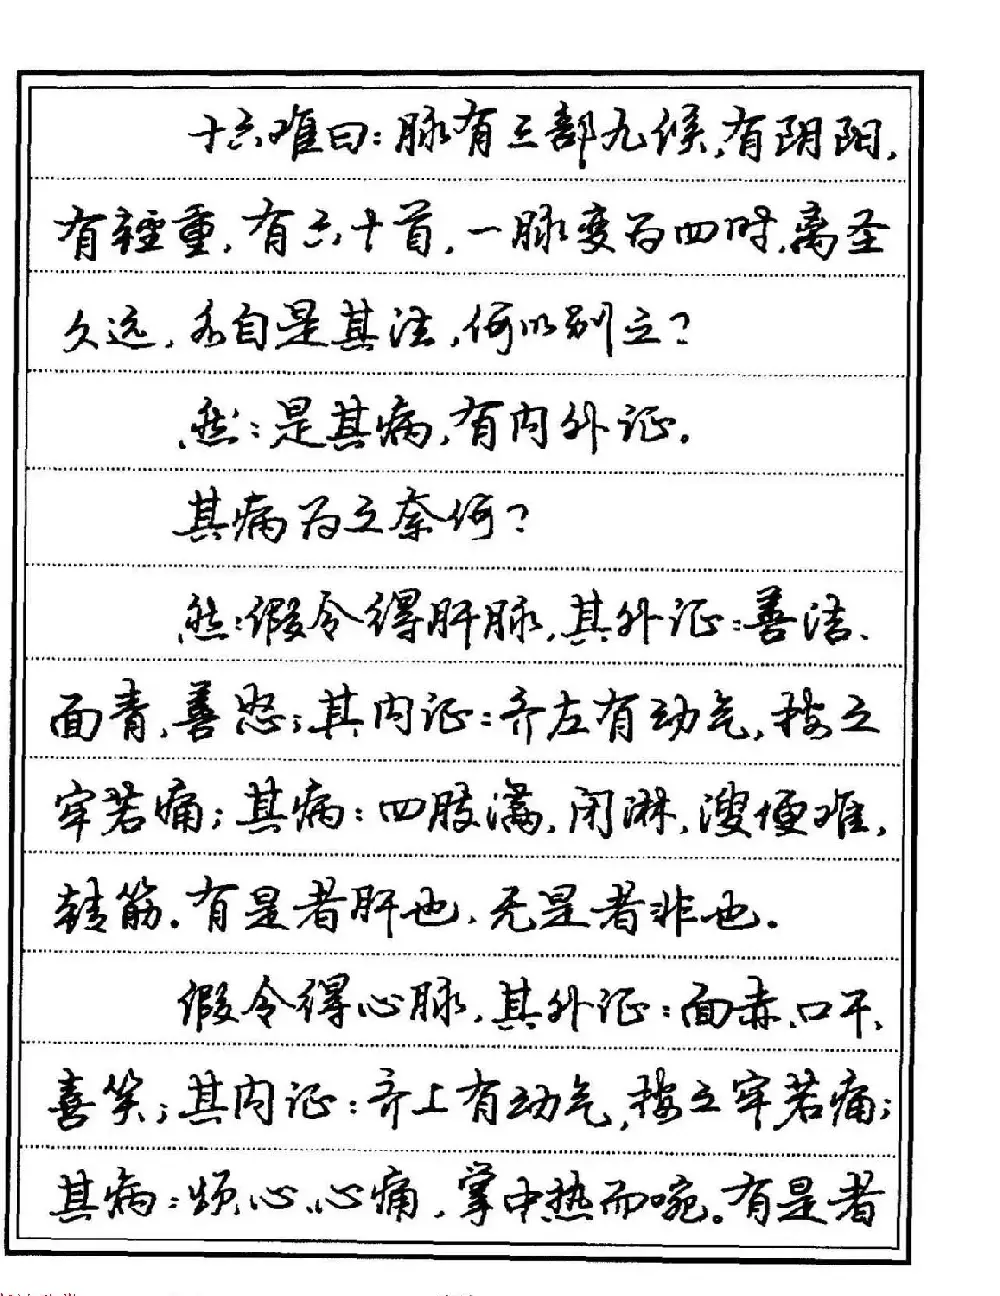 十六难曰：脉有三部九候，有阴阳，
有轻重，有六十首，一脉变为四时，离圣
久远，各自是其法，何以别之？
然：是其病，有内外证。
其病为之奈何？
然：假令得肝脉，其外证：善洁、
面青、善怒；其内证：齐左有动气，按之
牢若痛；其病：四肢满，闭淋，溲便难，
转筋。有是者肝也，无是者非也。
假令得心脉，其外证：面赤、口干、
喜笑；其内证：齐上有动气，按之牢若痛；
其病：烦心、心痛，掌中热而啘。有是者